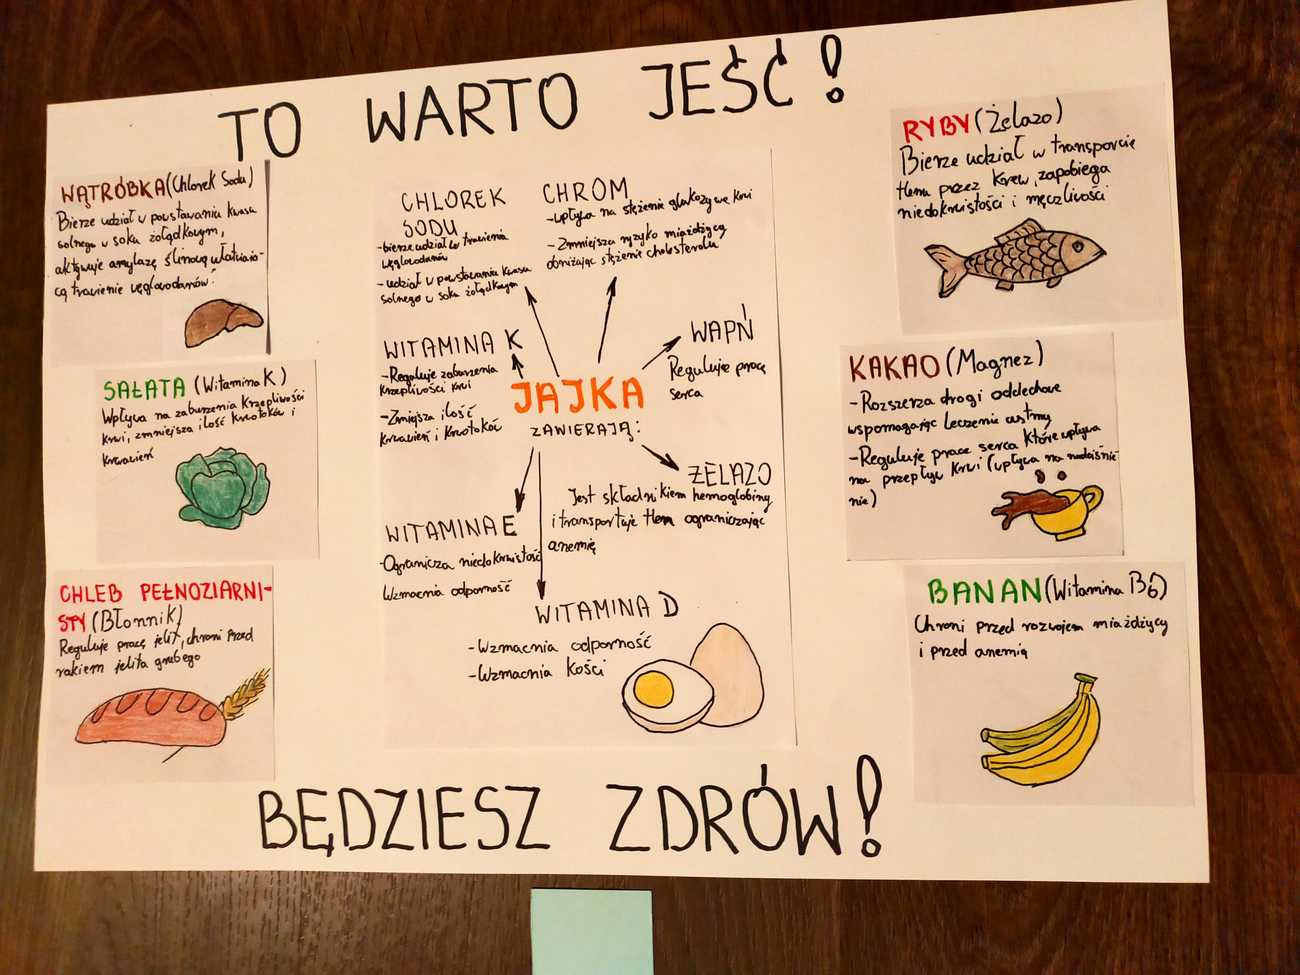 TO WARTO JEŚĆ!
WĄTRÓBKA (Chlorek Sodu)
Bierze udział w powstawaniu kwasu
solnego w soku żołądkowym,
aktywuje amylazę ślinową ułatwiają-
cą trawienie węglowodanów.
SAŁATA (Witamina K)
Wpływa na zaburzenia krzepliwości
krwi, zmniejsza ilość krwotoków i
krwawień
CHLEB PEŁNOZIARNI-
STY (Błonnik)
Reguluje pracę jelit, chroni przed
rakiem jelita grubego
CHLOREK
SODU
-bierze udział w trawieniu
węglowodanów
- udział w powstawaniu kwasu
solnego w soku żołądkowym
CHROM
-wpływa na stężenie glukozy we krwi
- Zmniejsza ryzyko miażdżycy
obniżając stężenie cholesterolu
WITAMINA K
- Reguluje zaburzenia
krzepliwości krwi
- Zmniejsza ilość
krwawień i krwotoków
WAPŃ
Reguluje pracę
serca
JAJKA
ZAWIERAJĄ:
ŻELAZO
Jest składnikiem hemoglobiny
i transportuje tlen ograniczając
anemię
WITAMINA E
-Ogranicza niedokrwistość
Wzmacnia odporność
WITAMINA D
- Wzmacnia odporność
- Wzmacnia kości
RYBY (Żelazo)
Bierze udział w transporcie
tlenu przez krew, zapobiega
niedokrwistości i męczliwości
KAKAO (Magnez)
- Rozszerza drogi oddechowe
wspomagając leczenie astmy
- Reguluje pracę serca które wpływa
na przepływ krwi (wpływa na nadciśnie-
nie)
BANAN (Witamina B6)
Chroni przed rozwojem miażdżycy
i przed anemią
BĘDZIESZ ZDRÓW!